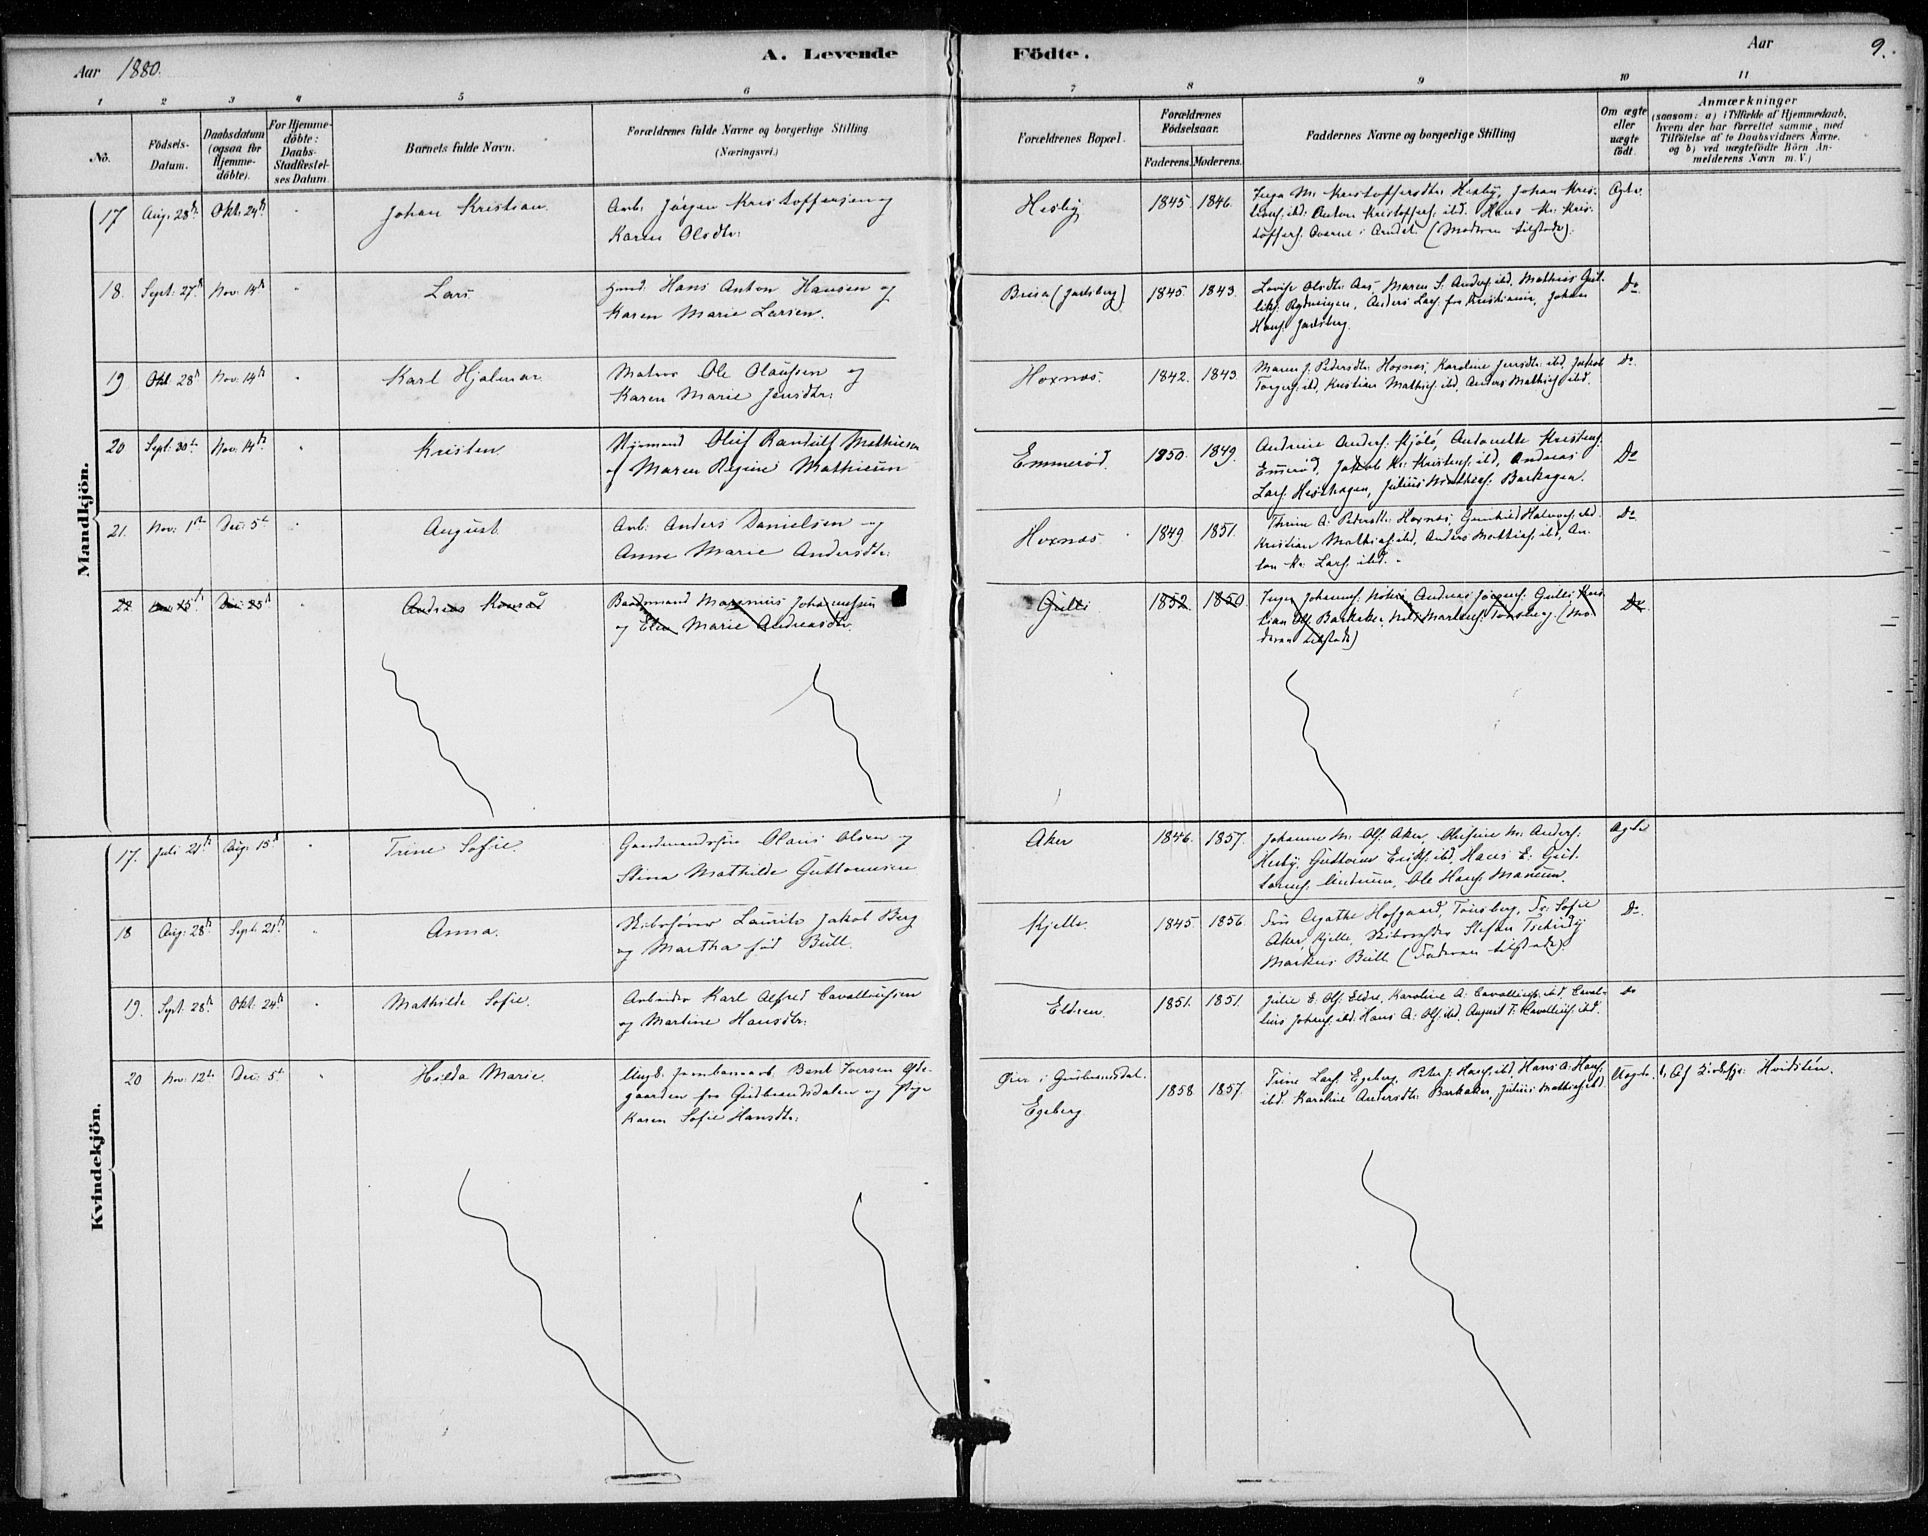 Aar 1880.
A. Levende Födte.
Aar
9.
1 2 3 4 5 6 7 8 9 10 11
No.
Födsels-
Datum.
Daabsdatum
(ogsaa for
Hjemme-
döbte).
For Hjemme-
döbte:
Daabs-
Stadfæstel-
ses Datum.
Barnets fulde Navn.
Forældrenes fulde Navne og borgerlige Stilling
(Næringsvei.)
Forældrenes Bopæl.
Forældrenes
Födselsaar.
Faderens. Moderens.
Faddernes Navne og borgerlige Stilling
Om ægte
eller
uægte
født.
Anmærkninger
(saasom: a) i Tilfælde af Hjemmedaab,
hvem der har forrettet samme, med
Tilföielse af to Daabsvidners Navne,
og b) ved uægtefödte Börn An-
melderens Navn m. V.)
Mandkjön.
17 Aug: 28de Okt: 24de Johan Kristian
Arb: Jørgen Kristoffersen og
Karen Olsdtr:
Hesby 1845. 1846.
Inga M. Kristoffersdtr: Hesby, Johan Kris-
tians: ibd: Anton Kristoffers: ibd. Hans Kr: Kris-
toffers: (Moderen tilstede).
Ægte.
18. Sept: 27de Nov: 14de Lars
Hans Anton Hansen og
Karen Marie Larsen.
Brua (Jarlsberg) 1845. 1843.
Lovise Olsdtr: Aas, Maren S. Anders: ibd, Mathias
Anders Lars: fra Kristiania, Johan
Hans: Jarlsberg.
Do.
19 Okt 28de Nov: 14de Karl Hjalmar
Matros Ole Olaussen og
Karen Marie Jensdtr:
Hoxnæs. 1842. 1843
Maren J. Pedersdtr: Hoxnæs, Karoline Jensdtr: ibd, Jakob
Torgers: ibd, Kristian Mathis: ibd, Anders Mathis: ibd.
Do.
20 Sept: 30te Nov: 14de Kristen
Styrmand Oluf Randulf Mathiesen
og Maren Regine Mathiesen
Emmerød. 1850. 1849.
Andrine Anders: Kjøle, Antonette Kristens:
Emerød, Jakob Kr: Kristens: ibd, Andreas
Lars: Heshagen, Julius Mathis: Barkager.
Do
21. Nov: 1ste Dec: 5te August.
Arb: Anders Danielsen og
Anne Marie Andersdtr:
Hoxnæs. 1849 1851.
Thrine A: Pedersdtr: Hoxnæs, Gunhild Halvors: ibd.
Kristian Mathias: ibd, Anders Mathias: ibd, An-
ton Kr: Lars: ibd.
Do
22. Nov: 15de Dec: 25de Andreas Konrad
Baadsmand Magnius Johannessen
og Elen Marie Andreasdtr:
Gulli 1852 1850.
Inger Johanns: Andreas Jørgens: Gulli, Kris-
tian Ols: Barkaker, Nils Martins: Tønsberg. (Mo-
deren tilstede)
Do.
Kvindekjön.
17. Juli 21de Aug: 15de Trine Sofie.
Gaardmandssøn Olaus Olsen og
Stina Mathilde Guttormsen
Aker 1846. 1857.
Johanne M: Ols: Aker, Olufine M: Anders:
Hesby, Guttorm Eriks: ibd, Hans E: Gut-
torms: Undrum, Ole Hans: Manum.
Ægte
18 Aug: 28de Sept: 21de Anna.
Skibsfører Laurits Jakob Berg
og Martha fød Bull.
Kjelle. 1845. 1856.
Fru Agathe Hofgaard, Tønsberg, Fr: Sofie
Aker, Kjelle, Skibsreder Stefan Tschudy
Markus Bull. (Faderen tilstede).
Do.
19. Sept: 28de Okt: 24de Mathilde Sofie.
Arbeider Karl Alfred Cavalliussen
og Martine Hansdtr:
Eldren. 1851. 1851.
Julie E. Ols: Eldre, Karoline A: Cavallius: ibd, Caval-
lius Johans: ibd: Hans A: Ols: ibd, August T: Kavallius: ibd.
Do
20 Nov: 12te Dec: 5te Hilda Marie.
Ungk. Jernbanearb. Bent Iversen
gaarden fra Gudbrandsdalen og Pige
Karen Sofie Hansdtr:
Øier i Gudbrandsdal.
Egeberg 1858 1857.
Trine Lars: Egeberg, Peter J. Hans: ibd, Hans A: Hans:
ibd: Karoline Andersdtr: Barkaker, Julius Mathias: ibd
Uægte.